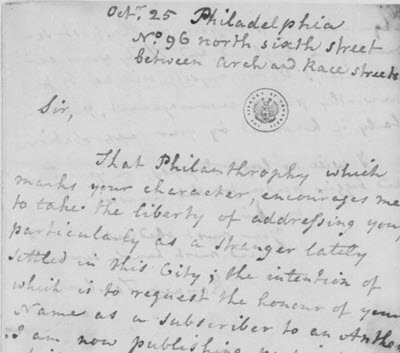 Octr. 25 Philadelphia
No. 96 north sixth street
between Arch and Race streets
Sir,
That Philanthrophy which
marks your character, encourages me
to take the liberty of addressing you,
particularly as a stranger lately
settled in this City; the intention of
which is to request the honour of your
Name as a subscriber to an
I am now publishing